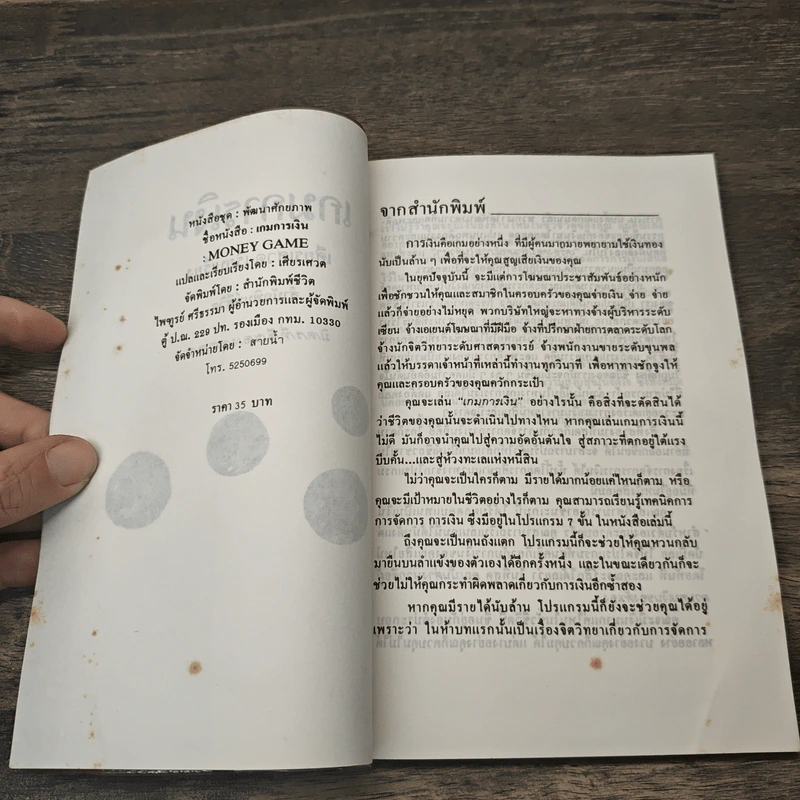 หนังสือชุด : พัฒนาศักยภาพ
ชื่อหนังสือ : เกมการเงิน
: MONEY GAME
แปลและเรียบเรียงโดย : เศียรเศวต
จัดพิมพ์โดย : สำนักพิมพ์ชีวิต
ไพฑูรย์ ศรีธรรมา ผู้อำนวยการและผู้จัดพิมพ์
ตู้ ป.ณ. 229 ปท. รองเมือง กทม. 10330
จัดจำหน่ายโดย : สายน้ำ
โทร. 5250699
ราคา 35 บาท
จากสำนักพิมพ์
การเงินคือเกมอย่างหนึ่ง ที่มีผู้คนมากมายพยายามใช้เงินทอง
นับเป็นล้าน ๆ เพื่อที่จะให้คุณสูญเสียเงินของคุณ
ในยุคปัจจุบันนี้ จะมีแต่การโฆษณาประชาสัมพันธ์อย่างหนัก
เพื่อชักชวนให้คุณและสมาชิกในครอบครัวของคุณจ่ายเงิน จ่าย จ่าย
แล้วก็จ่ายอย่างไม่หยุด พวกบริษัทใหญ่จะหาทางจ้างผู้บริหารระดับ
เซียน จ้างเอเยนต์โฆษณาที่มีฝีมือ จ้างที่ปรึกษาฝ่ายการตลาดระดับโลก
จ้างนักจิตวิทยาระดับศาสตราจารย์ จ้างพนักงานขายระดับขุนพล
แล้วให้บรรดาเจ้าหน้าที่เหล่านี้ทำงานทุกวินาที เพื่อหาทางชักจูงให้
คุณและครอบครัวของคุณควักกระเป๋า
คุณจะเล่น "เกมการเงิน" อย่างไรนั้น คือสิ่งที่จะตัดสินได้
ว่าชีวิตของคุณนั้นจะดำเนินไปทางไหน หากคุณเล่นเกมการเงินนี้
ไม่ดี มันก็อาจนำคุณไปสู่ความอัดอั้นตันใจ สู่สภาวะที่ตกอยู่ใต้แรง
บีบคั้น...และสู่ห้วงทะเลแห่งหนี้สิน
ไม่ว่าคุณจะเป็นใครก็ตาม มีรายได้มากน้อยแค่ไหนก็ตาม หรือ
คุณจะมีเป้าหมายในชีวิตอย่างไรก็ตาม คุณสามารถเรียนรู้เทคนิคการ
การจัดการ การเงิน ซึ่งมีอยู่ในโปรแกรม 7 ขั้น ในหนังสือเล่มนี้
ถึงคุณจะเป็นคนถังแตก โปรแกรมนี้ก็จะช่วยให้คุณหวนกลับ
มายืนบนลำแข้งของตัวเองได้อีกครั้งหนึ่ง และในขณะเดียวกันก็จะ
ช่วยไม่ให้คุณกระทำผิดพลาดเกี่ยวกับการเงินอีกซ้ำสอง
หากคุณมีรายได้นับล้าน โปรแกรมนี้ก็ยังจะช่วยคุณได้อยู่
เพราะว่า ในห้าบทแรกนั้นเป็นเรื่องจิตวิทยาเกี่ยวกับการจัดการ